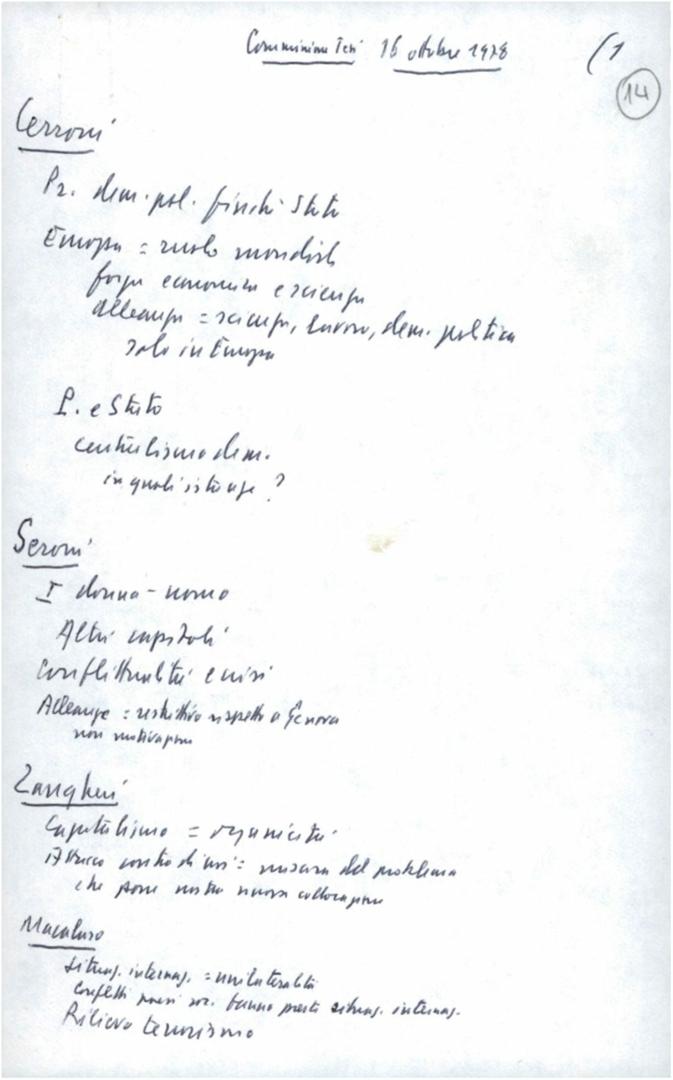 Commissione Tesi 16 ottobre 1978 (1
14
Cerroni
Pr. dem. pol. finchè Stato
Europa = ruolo mondiale
forza economia e scienza
alleanza = scienza, lavoro, dem. politica
solo in Europa
P. e Stato
centralismo dem.
in quali istanze?
Seroni
I donna-uomo
Altri capitoli
Conflittualità e crisi
Alleanze = restrittivo rispetto a Genova
non motivazione
Zangheri
Capitalismo = organicità
Attacco contro di noi = misura del problema
che pone nostra nuova collocazione
Macaluso
situaz. internaz. = unilateralità
conflitti paesi soc. fanno parte situaz. internaz.
Rilievo terrorismo